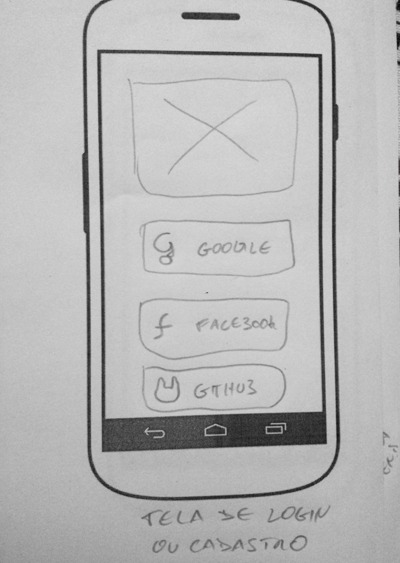 GOOGLE
f FACEBOOK
GITHUB
TELA DE LOGIN
OU CADASTRO